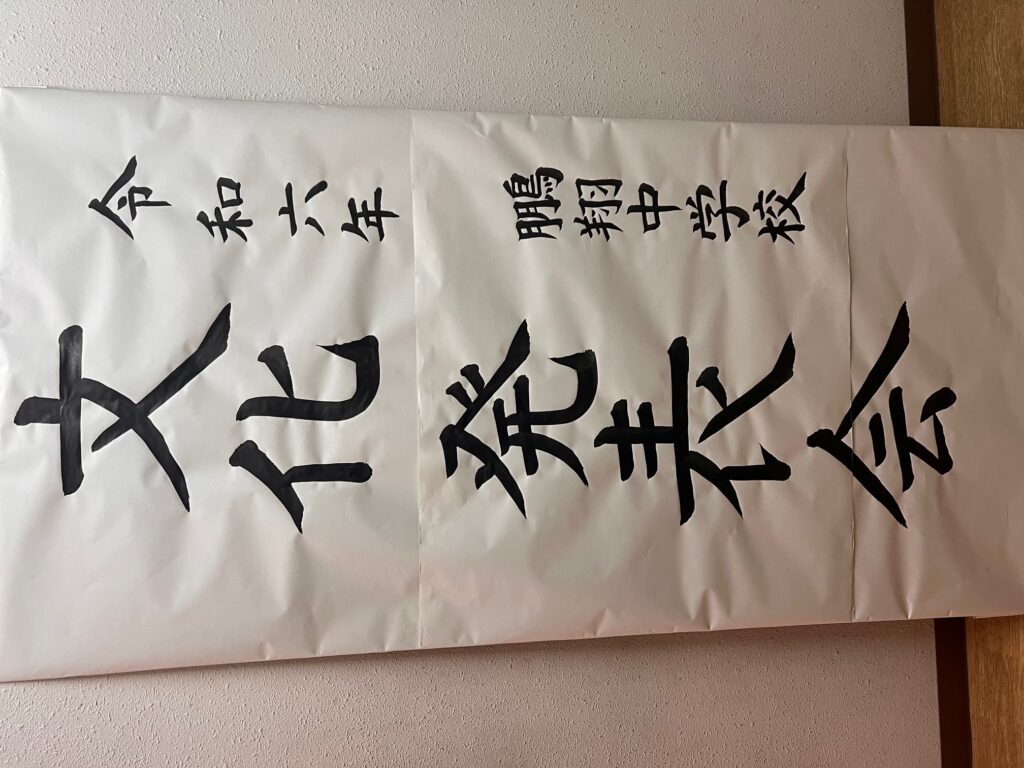 令和六年 鵬翔中学校
文化発表会